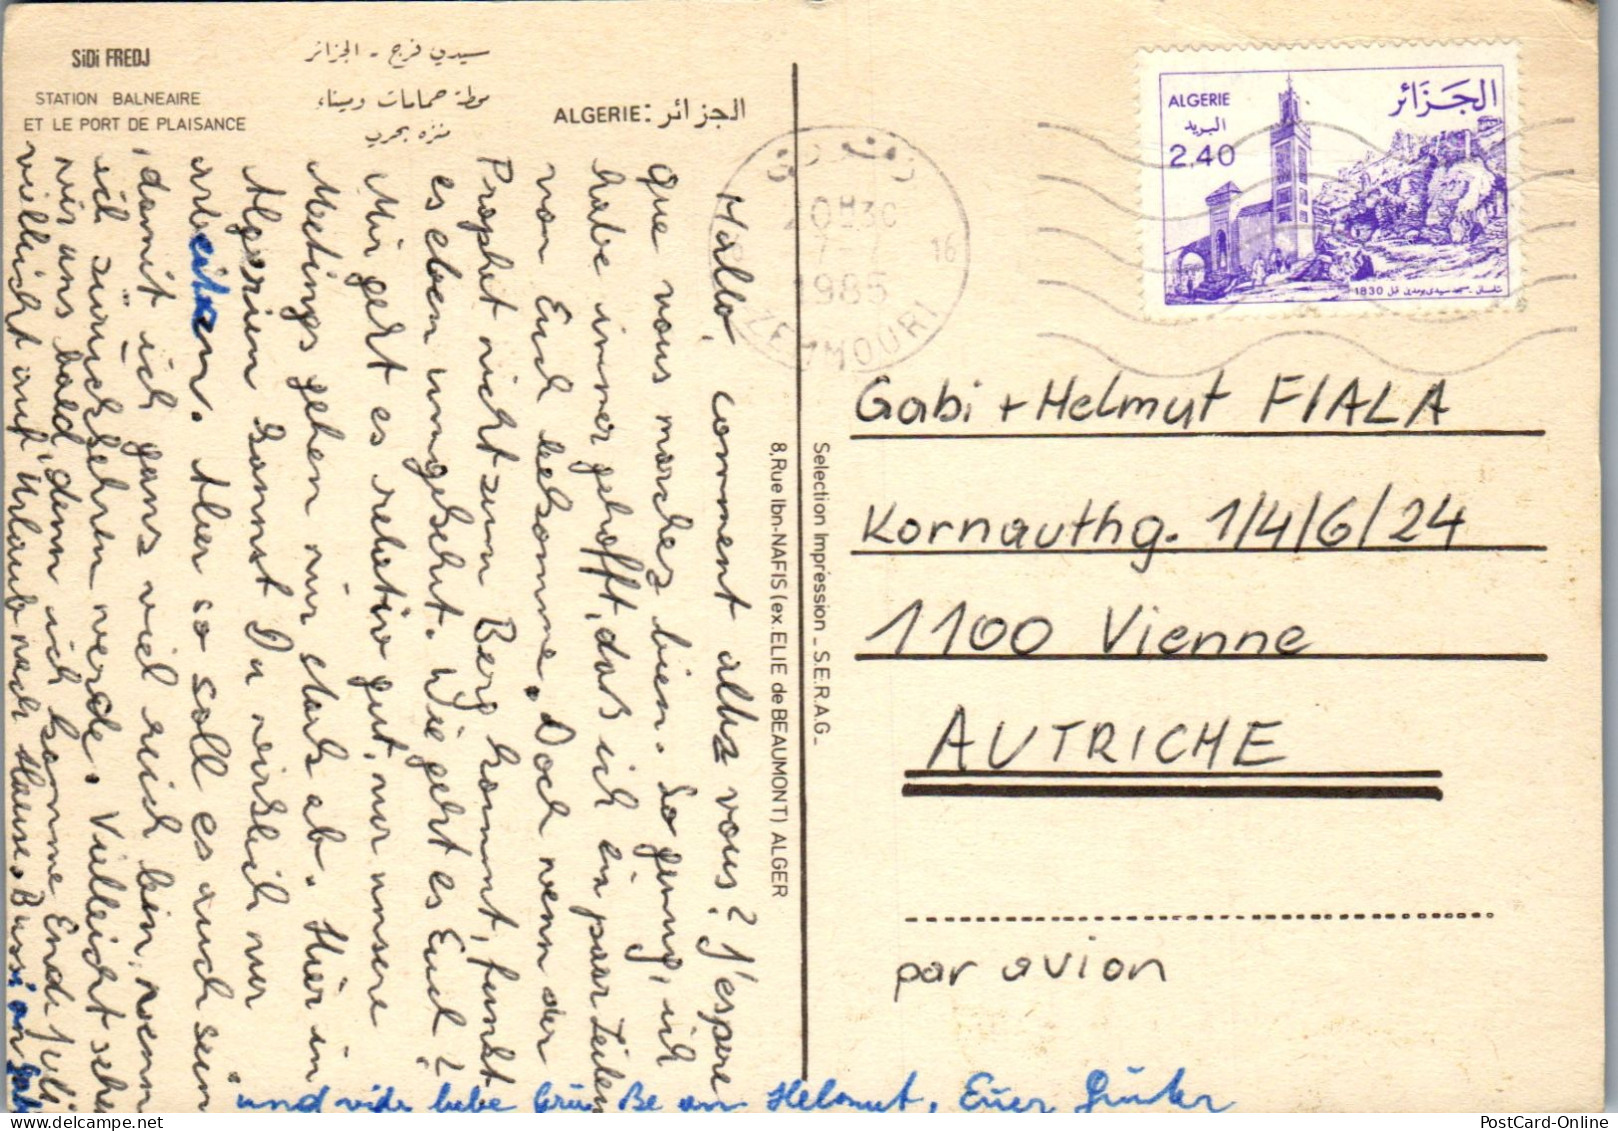 SiDi FREDJ
STATION BALNEAIRE
ET LE PORT DE PLAISANCE
سيدي فرج - الجزائر
محطة حمامات وميناء
منزه بحري
ALGERIE: الجزائر
Hallo, comment allez vous? J'espere
que vous marchez bien. So genug, ich
habe immer gehofft, daß ich ein paar Zeilen
von Euch bekomme. Doch wenn der
Prophet nicht zum Berg kommt, funkt
es eben umgekehrt. Wie geht es Euch?
Mir geht es relativ gut, nur unsere
Meetings gehen mir stark ab. Hier in
Algerien kannst Du wirklich nur
arbeiten. Aber so soll es auch sein
, damit ich ganz viel reich bin, wenn
ich zurückkehren werde. Vielleicht sehen
wir uns bald, denn ich komme Ende Juli
vielleicht auf Urlaub nach Hause. Bussi an Gabi
und viele liebe Grüße an Helmut, Euer Günter
Selection Impression _ S.E.R.A.G_
8,Rue Ibn-NAFIS (ex.ELIE de BEAUMONT) ALGER
ALGERIE
البريد
2,40
الجزائر
1830 تلمسان - مسجد سيدي بومدين قبل
زموري
20H30
7-7
1985
16
ZEMMOURI
Gabi + Helmut FIALA
Kornauthg. 1/4/6/24
1100 Vienne
AUTRICHE
par avion
PostCard-Online